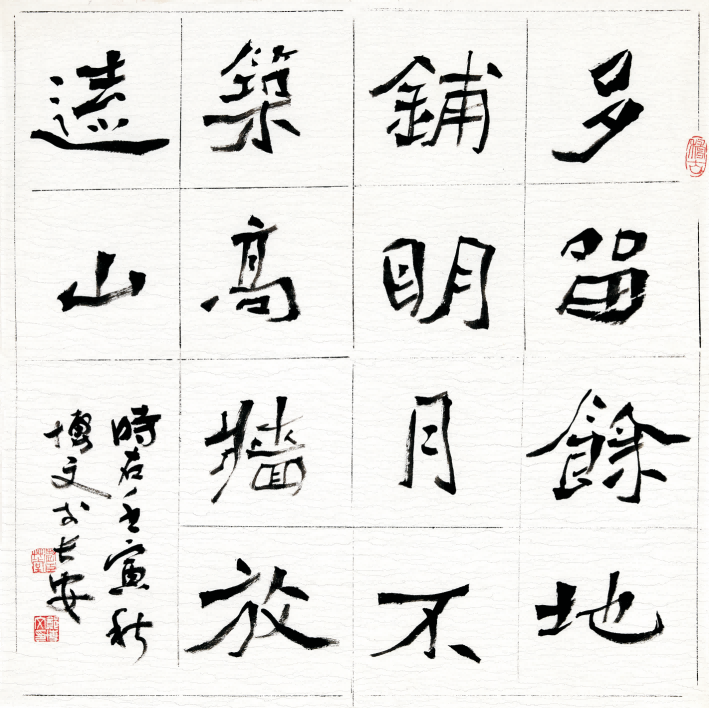 多留餘地
鋪明月不
築高牆放
遠山
時在壬寅秋
博文於長安